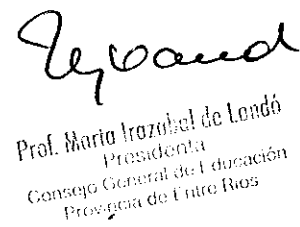 Prof. Maria Irazabal de Landó
Presidenta
Consejo General de Educación
Provincia de Entre Rios